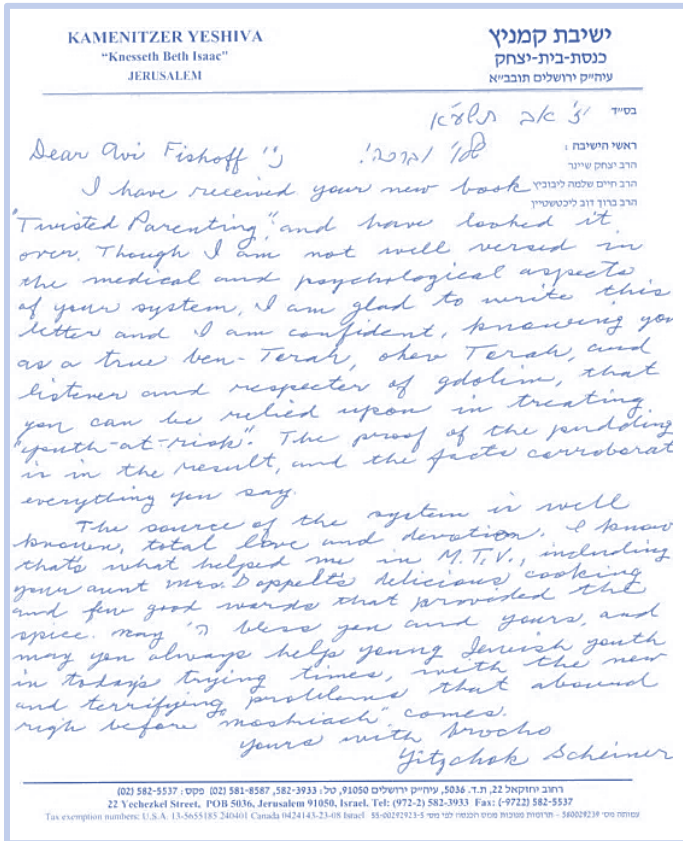 KAMENITZER YESHIVA
"Knesseth Beth Isaac"
JERUSALEM
ישיבת קמניץ
כנסת-בית-יצחק
עיה"ק ירושלים תובב"א
בס"ד
י"ג אב תשע"א
ראשי הישיבה :
הרב יצחק שיינר
הרב חיים שלמה ליבוביץ
הרב ברוך דוב ליכטשטיין
Dear Avi Fishoff נ"י
שלו' וברכה!
I have received your new book
"Twisted Parenting", and have looked it
over. Though I am not well versed in
the medical and psychological aspects
of your system, I am glad to write this
letter and I am confident, knowing you
as a true ben-Torah, ohev Torah, and
listener and respecter of gdolim, that
you can be relied upon in treating
"youth-at-risk". The proof of the pudding
is in the result, and the facts corroborat
everything you say.
The source of the system is well
known, total love and devotion. I know
that's what helped me in M.T.V., including
your aunt Mrs. Doppelt's delicious cooking
and few good words that provided the
spice. May ה' bless you and yours, and
may you always help young Jewish youth
in today's trying times, with the new
and terrifying problems that abound
righ before "moshiach" comes.
Yours with brocho
Yitzchok Scheiner
רחוב יחזקאל 22, ת.ד. 5036, עיה"ק ירושלים 91050, טל: 582-3933, 581-8587 (02) פקס : 582-5537 (02)
22 Yechezkel Street, POB 5036, Jerusalem 91050, Israel. Tel: (972-2) 582-3933 Fax: (-9722) 582-5537
Tax exemption numbers: U.S.A. 13-5655185 240401 Canada 0424143-23-08 Israel 55-00292923-5 עמותה מס' 580029239 - תרומות מוכרות ממס הכנסה לפי מס'